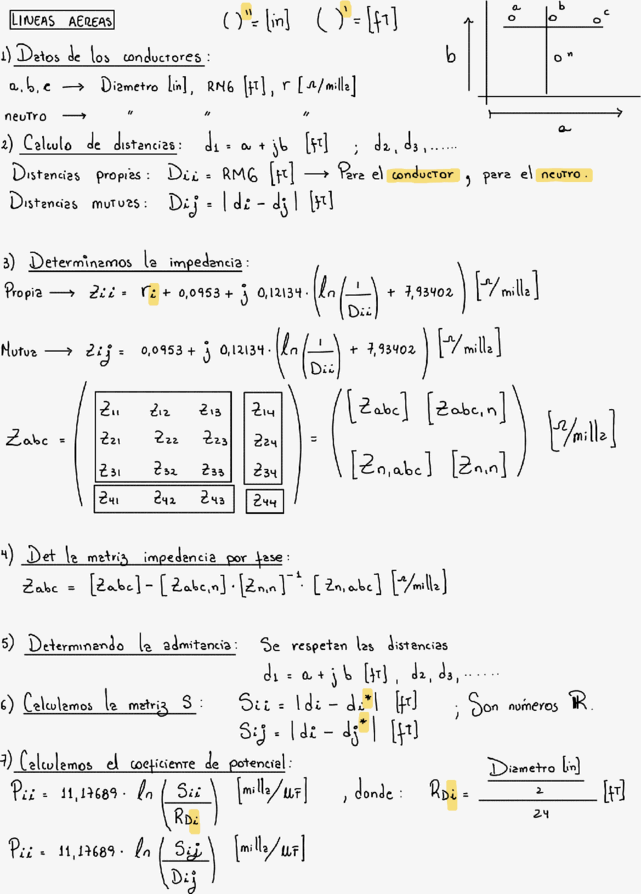 LINEAS AEREAS ( )" = [in] ( )' = [fT]
a b c
n
b
a
1) Datos de los conductores:
a, b, c → Diametro [in], RMG [fT], r [Ω/milla]
neutro → " " "
2) Calculo de distancias: d1 = a + jb [fT] ; d2, d3, ......
Distancias propias: Dii = RMG [fT] → Para el conductor, para el neutro.
Distancias mutuas: Dij = |di - dj| [fT]
3) Determinamos la impedancia:
Propia → Zii = ri + 0,0953 + j 0,12134 · (ln(1/Dii) + 7,93402) [Ω/milla]
Mutua → Zij = 0,0953 + j 0,12134 · (ln(1/Dii) + 7,93402) [Ω/milla]
Z11 Z12 Z13 Z14
Z21 Z22 Z23 Z24
Zabc = = ([Zabc] [Zabc,n] [Zn,abc] [Zn,n]) [Ω/milla]
Z31 Z32 Z33 Z34
Z41 Z42 Z43 Z44
4) Det la matriz impedancia por fase:
Zabc = [Zabc] - [Zabc,n] · [Zn,n]⁻¹ · [Zn,abc] [Ω/milla]
5) Determinando la admitancia: Se respetan las distancias
d1 = a + j b [fT], d2, d3, ......
6) Calculamos la matriz S: Sii = |di - di*| [fT] ; Son números ℝ.
Sij = |di - dj*| [fT]
7) Calculamos el coeficiente de potencial:
Pii = 11,17689 · ln(Sii/RDi) [milla/μF] , donde: RDi = (Diametro [in]/2)/24 [fT]
Pii = 11,17689 · ln(Sij/Dij) [milla/μF]